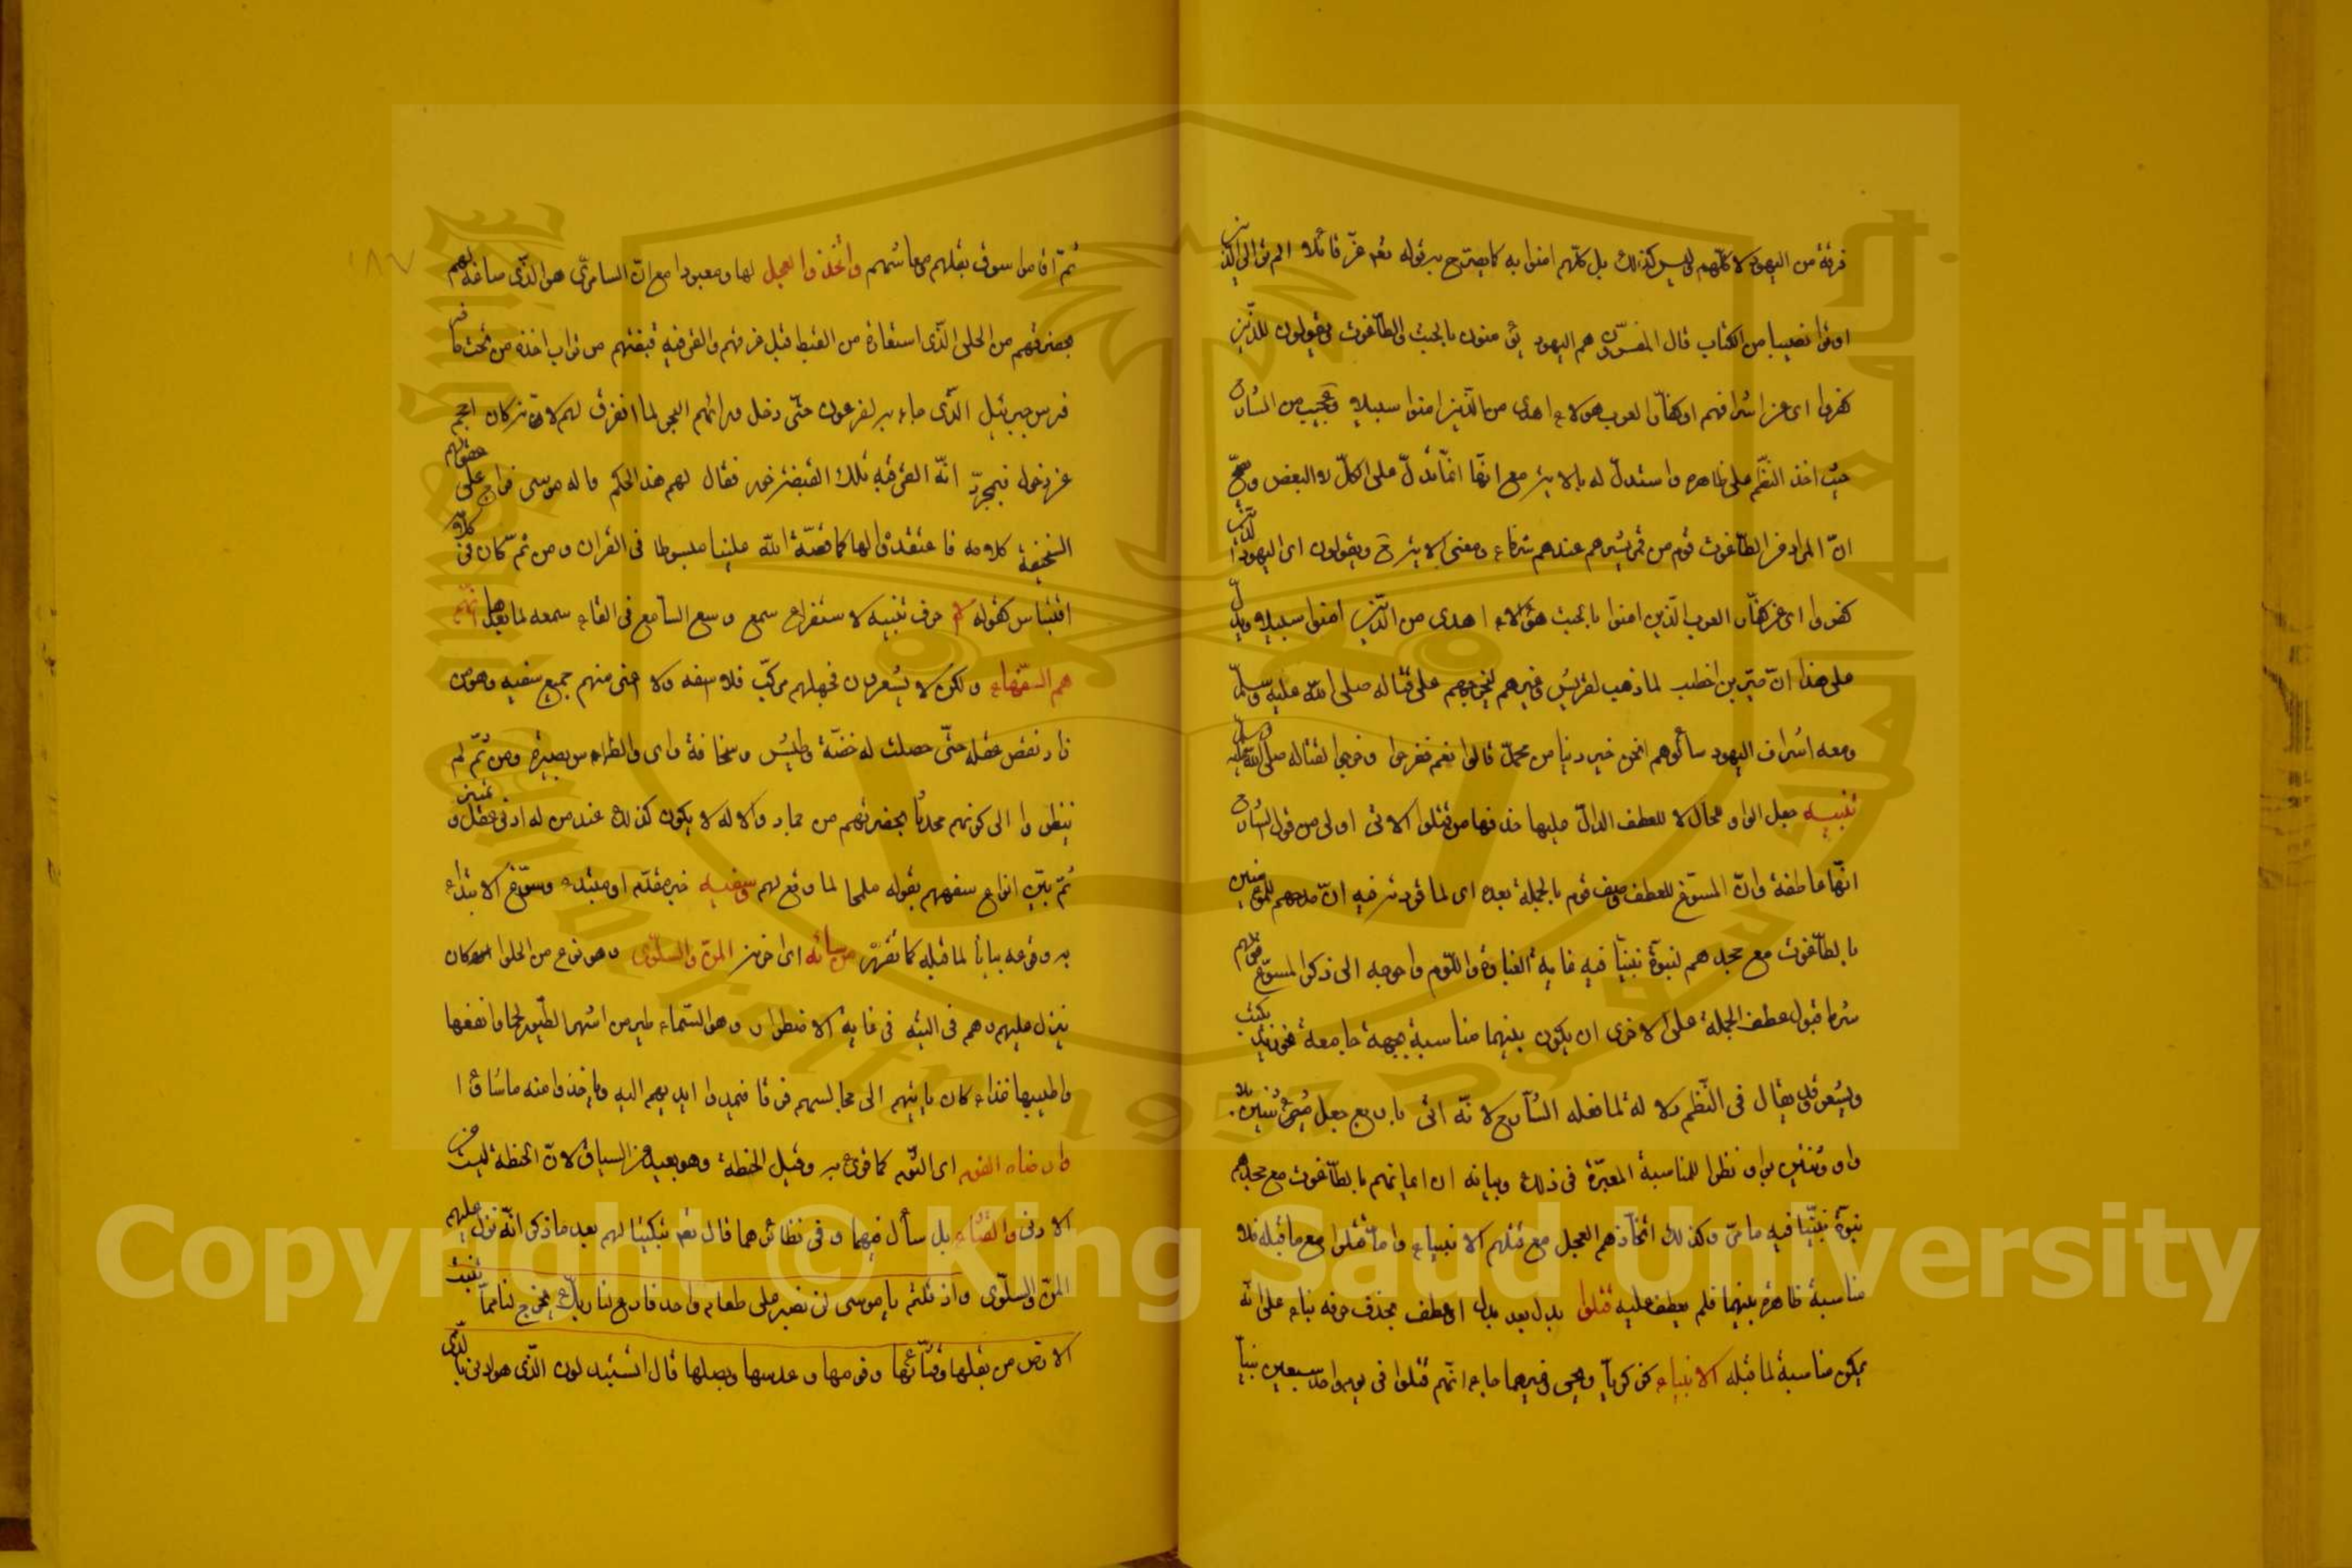 فرقة من اليهود لا كلهم وليس كذلك بل كلهم امنوا به كما يصرح به قوله تعالى عز قائلا الم تر الى الذين
اوتوا نصيبا من الكتاب قال المفسرون هم اليهود يؤمنون بالجبت والطاغوت ويقولون للذين
كفروا اى اشرافهم او كفار العرب هولاء اهدى من الذين امنوا سبيلا وعجيب من الشارح
حيث اخذ النظم على ظاهره واستدل له بالاية مع انها انما تدل على الكل لا البعض وصح
ان المراد من الطاغوت قوم من قريش هم عندهم شركاء ومعنى الاية ح ويقولون اى اليهود للذين
كفروا اى كفار العرب الذين امنوا بالجبت هؤلاء اهدى من الذين امنوا سبيلا ويدل
على هذا ان حيى بن اخطب لما ذهب لقريش وغيرهم ليخرجهم على قتاله صلى الله عليه وسلم
ومعه اشراف اليهود سألوهم انحن خير دينا من محمد قالوا نعم ففرحوا وخرجوا لقتاله صلى الله عليه وسلم
تنبيه جعل الواو محالا للعطف الدال عليها حذفها من قتلوا الاتى اولى من قول الشارح
انها عاطفة وان المسوغ للعطف وصف قوم بالجملة بعده اى لما قررته فيه ان مدحهم للمؤمنين
بالطاغوت مع جحدهم لنبوة نبينا فيه غاية الغباوة واللوم واحوجه الى ذكر المسوغ قولهم
شرط قبول عطف الجملة على الاخرى ان يكون بينهما مناسبة بجهة جامعة نحو زيد يكتب
ويشعر ولا يقال فى النظم دلالة لما فعله الشارح لانه اتى بابدع جعل
واو وبين بواو نظرا للمناسبة المعتبرة فى ذلك وبيانه ان ايمانهم بالطاغوت مع جحدهم
نبوة نبينا فيه ما مر وكذلك اتخاذهم العجل مع قتلهم الانبياء واما قتلوا مع ما قبله فلا
مناسبة ظاهرة بينهما فلم يعطف عليه قتلوا بدل بعد بدل او عطف بحذف حرفه بناء على انه
يمكن مناسبة لما قبله الانبياء كزكريا ويحيى وغيرهما جاء انهم قتلوا فى يوم واحد سبعين نبيا
ثم اقاموا سوق بقلهم معاشهم واتخذوا العجل لها ومعبودا مع ان السامرى هو الذى صاغه لهم
بحضرتهم من الحلى الذى استعاره من القبط قبل غرقهم والقى فيه قبضتهم من تراب اخذه من تحت حافر
فرس جبريل الذى جاء به لفرعون حتى دخل وراءهم البحر لما انفرق لهم لانه كان احجم
عن دخوله فبمجرد انه القى فيه تلك القبضة خار فقال لهم هذا الهكم واله موسى فراج على عقولهم
السخيفة كلامه فاعتقدوا لها كما قصه الله علينا مبسوطا فى القران ومن ثم كان فى كلامه
اقتباس كقوله الا حرف تنبيه لاستفراغ سمع وسع السامع فى القاء سمعه لما بعدها انهم
هم السفهاء ولكن لا يشعرون فجهلهم مركب فلا اسفه ولا اغبى منهم جمع سفيه وهو من
زاد نقص عقله حتى حصلت له خفة وطيش وسخافة راى وانطماس بصيرة ومن ثم لم
ينظروا الى كونهم محدثا بحضرتهم من جماد والاله لا يكون كذلك عند من له ادنى عقل وتمييز
ثم بين انواع سفههم بقوله ملمحا لما وقع لهم وسفيه خبر مقدم او مبتدء وسوغ الابتداء
به وقوعه بيانا لما قبله كما تقرر من ساءه اى احزنه المن والسلوى وهو نوع من الحلوا كان
ينزل عليهم وهم فى التيه فى غاية الاضطرار وهو السماء طير من اشهر الطيور لحما وانفعها
واطيبها غذاء كان ياتيهم الى مجالسهم فرقا فيمدوا ايديهم اليه وياخذوا منه ما شاؤا
وارضاه الفوم اى الثوم كما قرئ به وقيل الحنطة وهو بعيد عن السياق لان الحنطة ليست من
الادنى والقثاء بل سأل فيهما وفى نظائرهما قال تعالى تبكيتا لهم بعد ما ذكر انه نزل عليهم
المن والسلوى واذ قلتم يا موسى لن نصبر على طعام واحد فادع لنا ربك يخرج لنا مما تنبت
الارض من بقلها وقثائها وفومها وعدسها وبصلها قال اتستبدلون الذى هو ادنى بالذى
Copyright © King Saud University
1957